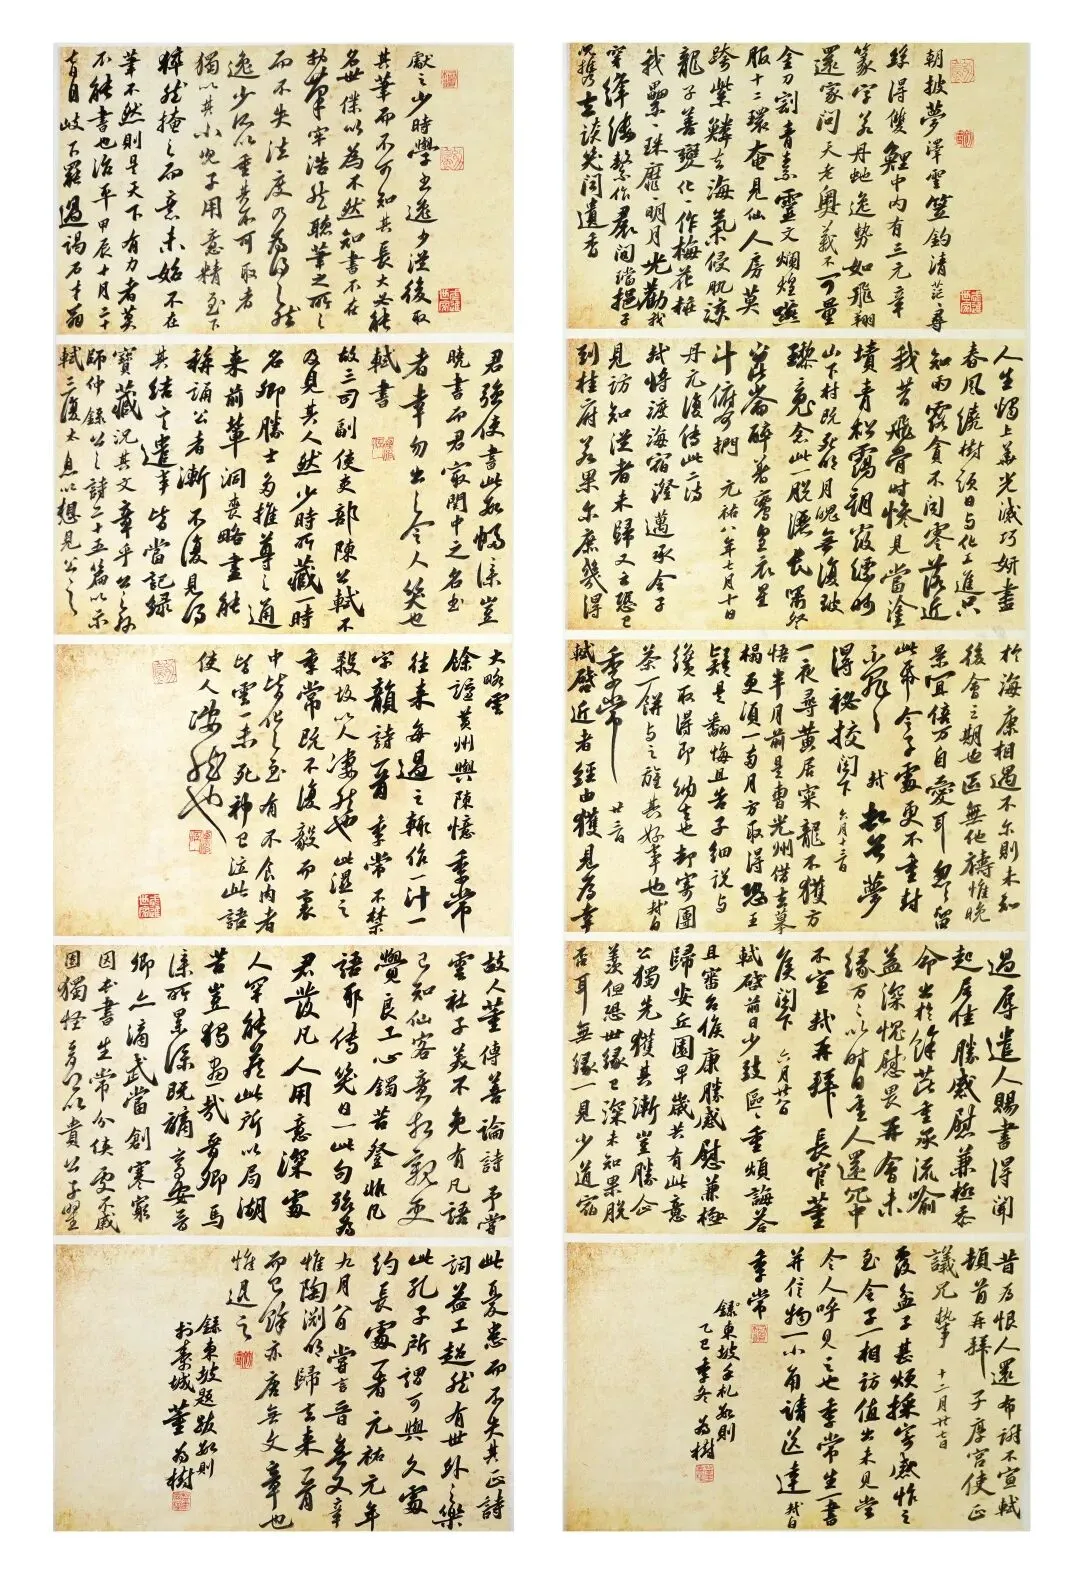 朝披夢澤雲笠釣清茫尋
絲得雙鯉中內有三元章
篆字若丹蛇逸勢如飛翔
還家問天老奧義不可量
金刀割青素靈文爛煌煌嚥
服十二環奄見仙人房莫
跨紫鱗去海氣侵肌涼
龍子善變化一作梅花粧
我纍珠靡明月光勸我
穿絳縷繫作裙間璫挹子
攜去談笑聞遺香
人生燭上華光滅巧妍盡
春風繞樹頭日與化工進只
知雨露貪不聞零落近
我昔飛骨時慘見當塗
墳青松靄朝霞縹緲
山下村既死明月魄無復玻
瓈魂念此一脫灑長嘯祭
崑崙醉著鸞皇衣星
斗俯可捫 元祐八年七月十日
丹元復傳此二詩
軾將渡海宿澄邁承令子
見訪知從者未歸又云恐已
到桂府若果爾庶幾得
於海康相遇不爾則未知
後會之期也區無他禱惟晚
景宜倍萬自愛耳忽忽留
此帋令子處更不重封
不罪 軾 夢
得秘校閣下 六月十三日
一夜尋黃居寀龍不獲方
悟半月前是曹光州借去摹
榻更須一兩月方取得恐王
疑是翻悔且告子細說與
纔取得即納去也却寄團
茶一餅與之旌其好事也軾白
季常 廿三日
軾啓近者經由獲見為幸
過辱遣人賜書得聞
起居佳勝感慰兼極忝
命出於餘芘重承流喻
益深愧慰畏再會未
緣萬萬以時自重人還冗中
不宣軾再拜 長官董
侯閣下 六月廿八日
軾啓前日少致區區重煩誨荅
且審台侯康勝感慰兼極
歸安丘園早歲共有此意
公獨先獲其漸豈勝企
羨但恐世緣已深未知果脫
否耳無緣一見少道宿
昔為恨人還布謝不宣軾
頓首再拜 子厚宮使正
議兄執事 十二月廿七日
覆盆子甚煩採寄感怍之
至令子一相訪值出未見當
令人呼見之也季常先生一書
并信物一小角請送達軾白
季常
錄東坡手札數則
乙巳季冬為樹
獻之少時學書逸少從後取
其筆而不可知其長大必能
名世僕以為不然知書不在
於筆牢浩然聽筆之所之
而不失法度乃為得之然
逸少所以重其不可取者
獨以其小兒子用意精至
猝然掩之而意未始不在
筆不然則是天下有力者莫
不能書也治平甲辰十月二十
七日自岐下罷過謁石才翁
君強使書此數幅僕豈
曉書而君最關中之名書
者幸勿出之令人笑也
軾書
故三司副使吏部陳公軾不
及見其人然少時所藏一時
名卿勝士多推尊之通
來前輩凋喪略盡能
稱誦公者漸不復見得
其結言遺事皆當記錄
寶藏況其文章乎公之孫
師仲錄公之詩二十五篇以示
軾三復太息以想見公之
大略云
餘謫黃州與陳慥季常
往來每過之輒作一汁一
字韻詩一首季常不禁
殺故以人凄然也此濕之
季常既不復殺而裏
中皆化之至有不食肉者
皆云未死神已泣此語
使人凄然也
故人董傳善論詩予嘗
雲杜子美不免有凡語
已知仙客意相親更
覺良工心獨苦登非凡
語耶傳笑曰此句殆為
君發凡人用意深處
人罕能此所以局湖
苦豈獨畫哉
因本書生常
因獨怪以貴公子
此憂患而不失其正詩
詞益工超然有世外之樂
此孔子所謂可與久處
約長處者元祐元年
九月八日嘗言晉無文章
惟陶淵明歸去來一首
而已餘亦唐無文章也
惟退之
錄東坡題跋數則
於秦城董為樹